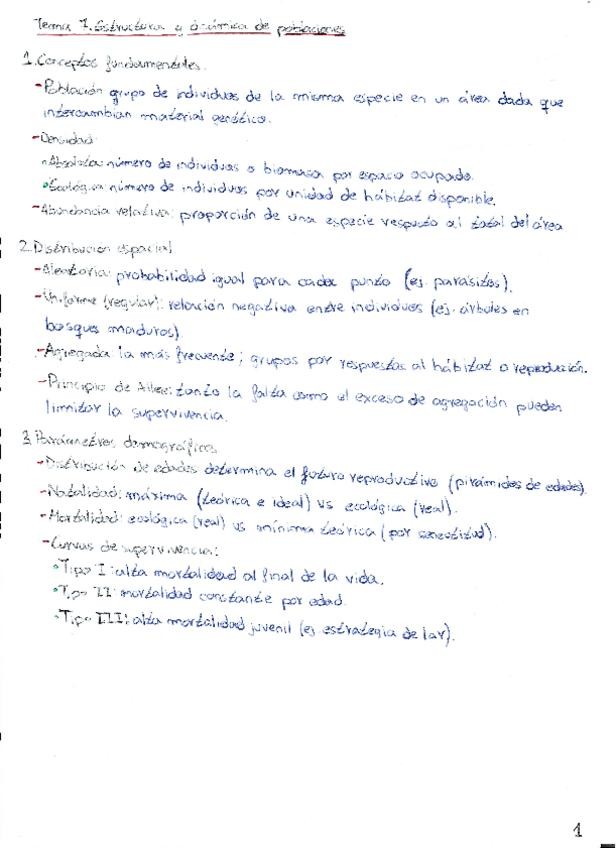 Tema 7. Estructura y dinámica de poblaciones
1. Conceptos fundamentales.
- Población grupo de individuos de la misma especie en un área dada que
intercambian material genético.
- Densidad:
• Absoluta: número de individuos o biomasa por espacio ocupado.
• Ecológica número de individuos por unidad de hábitat disponible.
- Abundancia relativa: proporción de una especie respecto al total del área
2. Distribución espacial
- Aleatoria: probabilidad igual para cada punto (ej. parásitos).
- Uniforme (regular): relación negativa entre individuos (ej. árboles en
bosques maduros).
- Agregada la más frecuente; grupos por respuestas al hábitat o reproducción.
- Principio de Allee: tanto la falta como el exceso de agregación pueden
limitar la supervivencia.
3. Parámetros demográficos
- Distribución de edades determina el futuro reproductivo (pirámides de edades).
- Natalidad: máxima (teórica e ideal) vs ecológica (real).
- Mortalidad: ecológica (real) vs mínima teórica (por senectud).
- Curvas de supervivencia:
• Tipo I: alta mortalidad al final de la vida.
• Tipo II: mortalidad constante por edad.
• Tipo III: alta mortalidad juvenil (ej estrategia de la r).
1